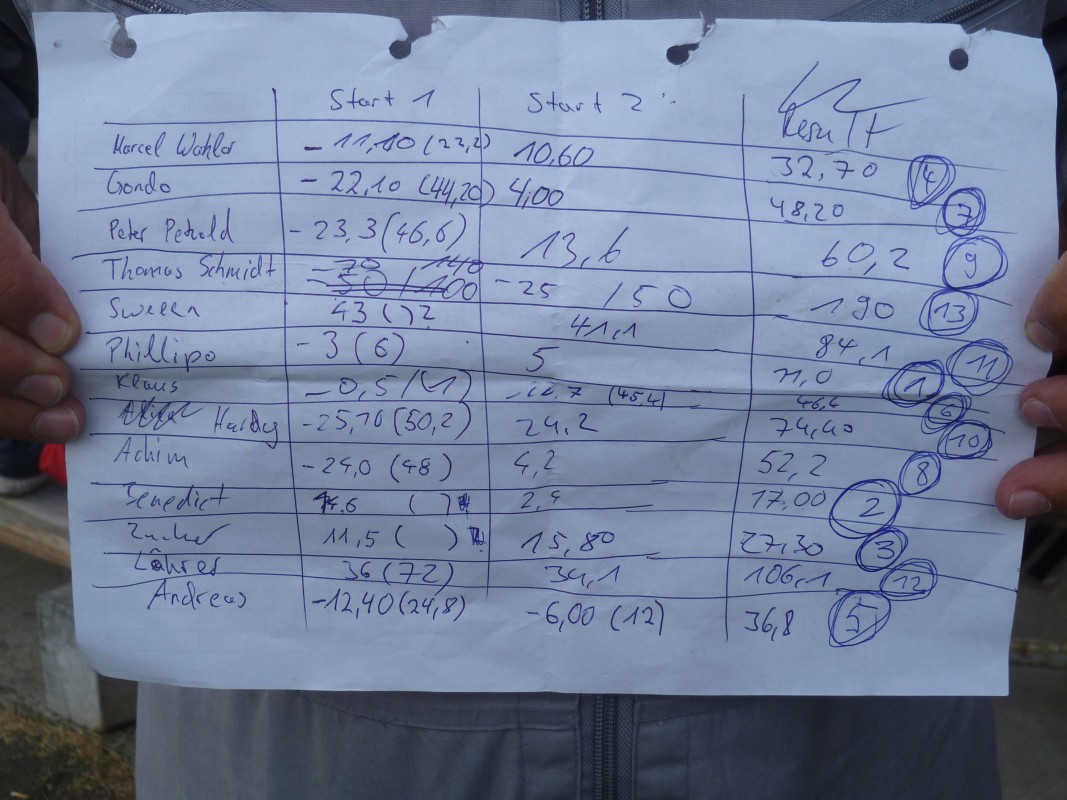 Start 1 Start 2 Resultt
Marcel Wahler - 11,10 (22,2) 10,60 32,70 4
Gondo - 22,10 (44,20) 4,00 48,20 7
Peter Petzold - 23,3 (46,6) 13,6 60,2 9
Thomas Schmidt - 70 140 - 25 / 50 190 13
Sween 43 ( ) ? 41,1 84,1 11
Phillipo - 3 (6) 5 11,0 1
Klaus - 0,5 / (1) (45,4) 46,4 6
Hartwig - 25,10 (50,2) 24,2 74,40 10
Achim - 24,0 (48) 4,2 52,2 8
Benedict 14.6 ( ) 2,4 17,00 2
Zucker 11,5 ( ) 15,80 27,30 3
36 (72) 34,1 106,1 12
Andreas - 12,40 (24,8) - 6,00 (12) 36,8 5